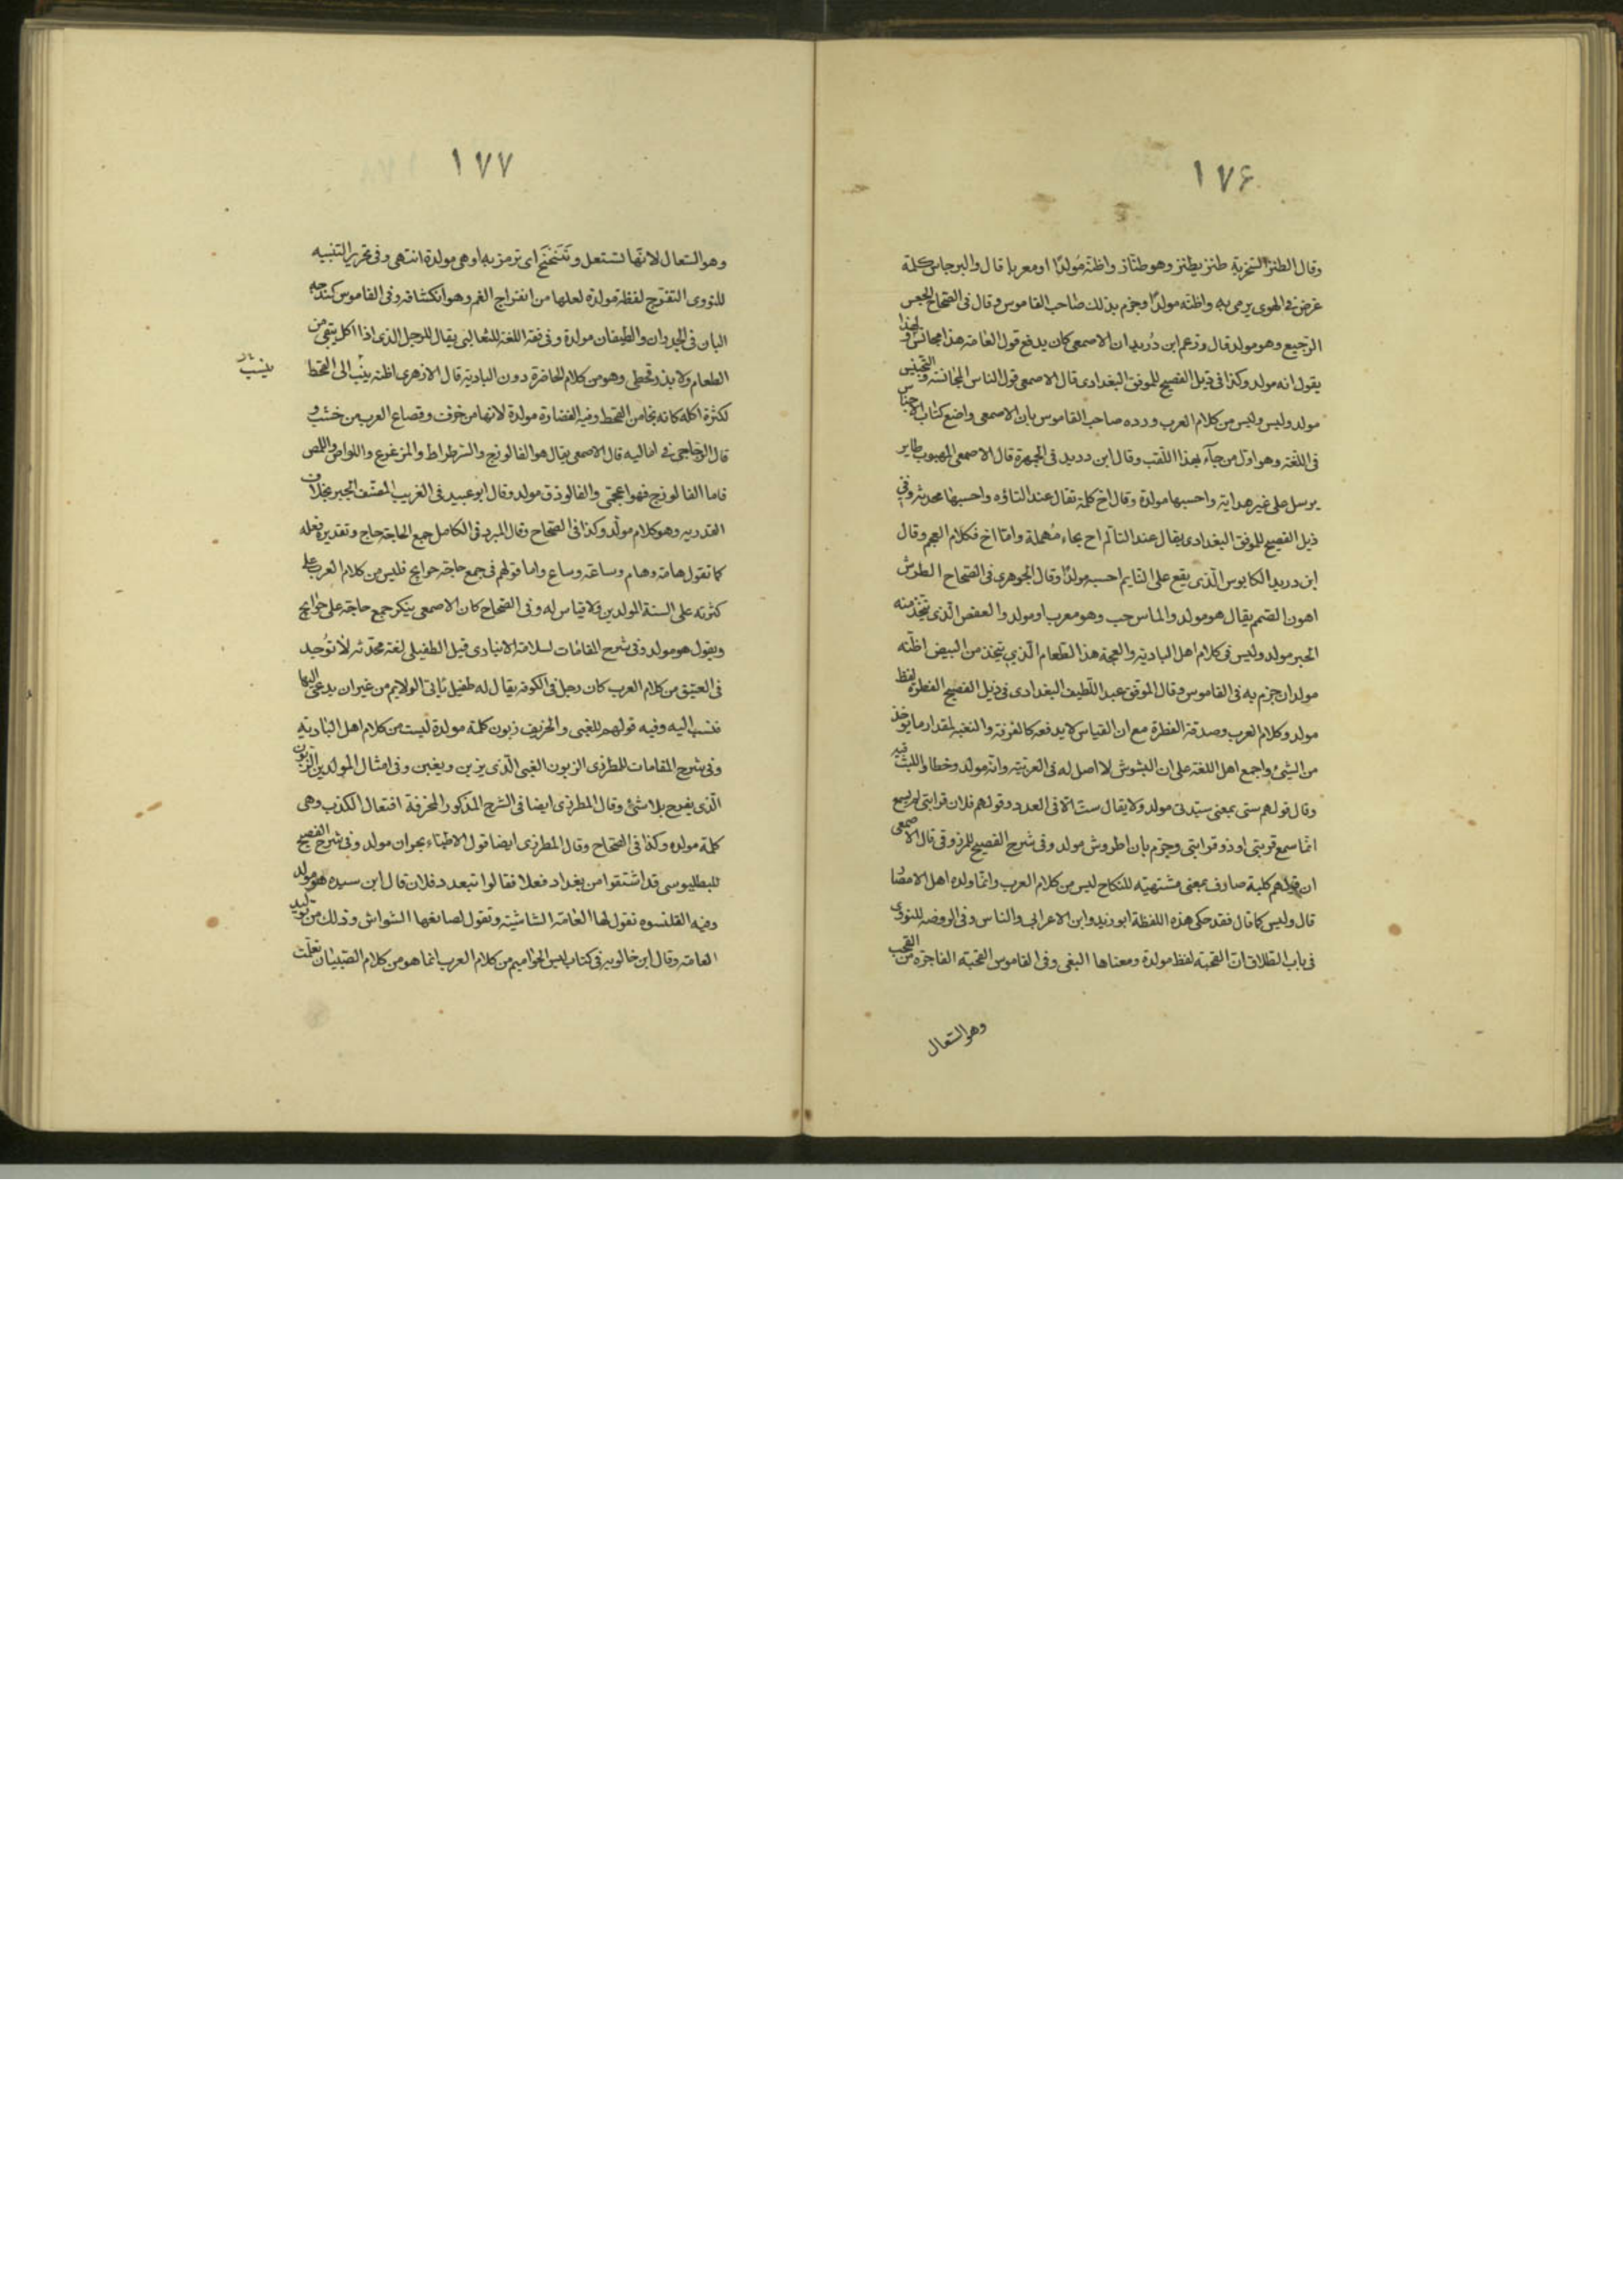 ١٧۶
وقال الطنز السخرية طنز يطنز وهو طناز واظنه مولدا او معربا قال والبرجاس كلمة
غرض فى الهوى يرمى به واظنه مولدا وجزم بذلك صاحب القاموس وقال فى الصحاح الجعس
الرجيع وهو مولد قال وزعم ابن دريد ان الاصمعى كان يدفع قول العامة هذا مجانس لهذا و
يقول انه مولد وكذا فى ذيل الفصيح للموفق البغدادى قال الاصمعى قول الناس المجانسة والتجنيس
مولد وليس وليس من كلام العرب ورده صاحب القاموس بان الاصمعى واضع كتاب الاجناس
فى اللغة وهو اول من جآء بهذا اللقب وقال ابن دريد فى الجمهرة قال الاصمعى المهبوب طاير
يرسل على غير هداية واحسبها مولدة وقال اخ كلمة تقال عند التاؤه واحسبها محدثة وفى
ذيل الفصيح للموفق البغدادى يقال عند التالم اح بحاء مهملة واما اخ فكلام العجم وقال
ابن دريد الكابوس الذى يقع على النايم احسبه مولدا وقال الجوهرى فى الصحاح الطرش
اهون الصمم يقال هو مولد والماس حب وهو معرب او مولد والعفص الذى يتخذ منه
الحبر مولد وليس فى كلام اهل البادية والعجة هذا الطعام الذى يتخذ من البيض اظنه
مولدا وجزم به فى القاموس وقال الموفق عبد اللطيف البغدادى فى ذيل الفصيح الفطرة لفظ
مولد وكلام العرب وصدقة الفطرة مع ان القياس لا يدفعه كالفرقة والنغبة لمقدار ما يوخذ
من الشئ واجمع اهل اللغة على ان التشوش لا اصل له فى العربية وانه مولد وخطاوا الليث فيه
وقال قولهم ستى بمعنى سيدتى مولد ولا يقال ست الا فى العدد وقولهم فلان قرابتى لم يسمع
انما سمع قريبى او ذو قرابتى وجزم بان اطروش مولد وفى شرح الفصيح للمرزوقى قال الاصمعى
ان قولهم كلبة صارف بمعنى مشتهية للنكاح ليس من كلام العرب وانما ولده اهل الامصار
قال وليس كما قال فقد حكى هذه اللفظة ابو زيد وابن الاعرابى والناس وفى الروضة للنووى
فى باب الطلاق ان القحبة لفظ مولدة ومعناها البغى وفى القاموس القحبة الفاجرة من القحب
وهو السعال
١٧٧
وهو السعال لانها تسعل وتتنحنح اى ترمز به او هى مولدة انتهى وفى تحرير التنبيه
للنووى التفرج لفظة مولدة لعلها من انفراج الغم وهو انكشافه وفى القاموس كندجة
البان فى الجدران والطيقان مولدة وفى فقه اللغة للثعالبى يقال للرجل الذى اذا اكل يبقى من
الطعام ولا يذر قحطى وهو من كلام الحاضرة دون البادية قال الازهرى اظنه ينسب الى القحط
ينسب
لكثرة اكله كانه نجا من القحط وفيه الغضارة مولدة لانها من خزف وقصاع العرب من خشب و
قال الزجاجى فى اماليه قال الاصمعى يقال هو الفالوذج والسرطراط والمزعزع واللواص واللمص
فاما الفالوذج فهو اعجمى والفالوذق مولد وقال ابو عبيد فى الغريب المصنف الجبر بخلاف
القدرية وهو كلام مولد وكذا فى الصحاح وقال المبرد فى الكامل جمع الحاجة حاج وتقديره فعلة
كما تقول هامة وهام وساعة وساع واما قولهم فى جمع حاجة حوايج فليس من كلام العرب على
كثرته على السنة المولدين ولا قياس له وفى الصحاح كان الاصمعى ينكر جمع حاجة على حوايج
ويقول هو مولد وفى شرح المقامات لسلامة الانبارى قيل الطفيلى لغة محدثة لا توجد
فى العتيق من كلام العرب كان رجل فى الكوفة يقال له طفيل ياتى الولايم من غير ان يدعى اليها
فنسب اليه وفيه قولهم للغبى والحريف زبون كلمة مولدة ليست من كلام اهل البادية
وفى شرح المقامات للمطرزى الزبون الغبى الذى يزبن ويغبن وفى امثال المولدين الزبون
الذى يفرح بلا شئ وقال المطرزى ايضا فى الشرح المذكور المخرقة افتعال الكذب وهى
كلمة مولدة وكذا فى الصحاح وقال المطرزى ايضا قول الاطباء بحران مولد وفى شرح الفصيح
للبطليوسى قد اشتقوا من بغداد فعلا فقالوا تبغدد فلان قال ابن سيده هو مولد
وفيه القلنسوة تقول لها العامة الشاشية وتقول لصانعها الشواش وذلك من توليد
العامة وقال ابن خالويه فى كتاب ليس الحواميم من كلام العرب انما هو من كلام الصبيان تعلمت